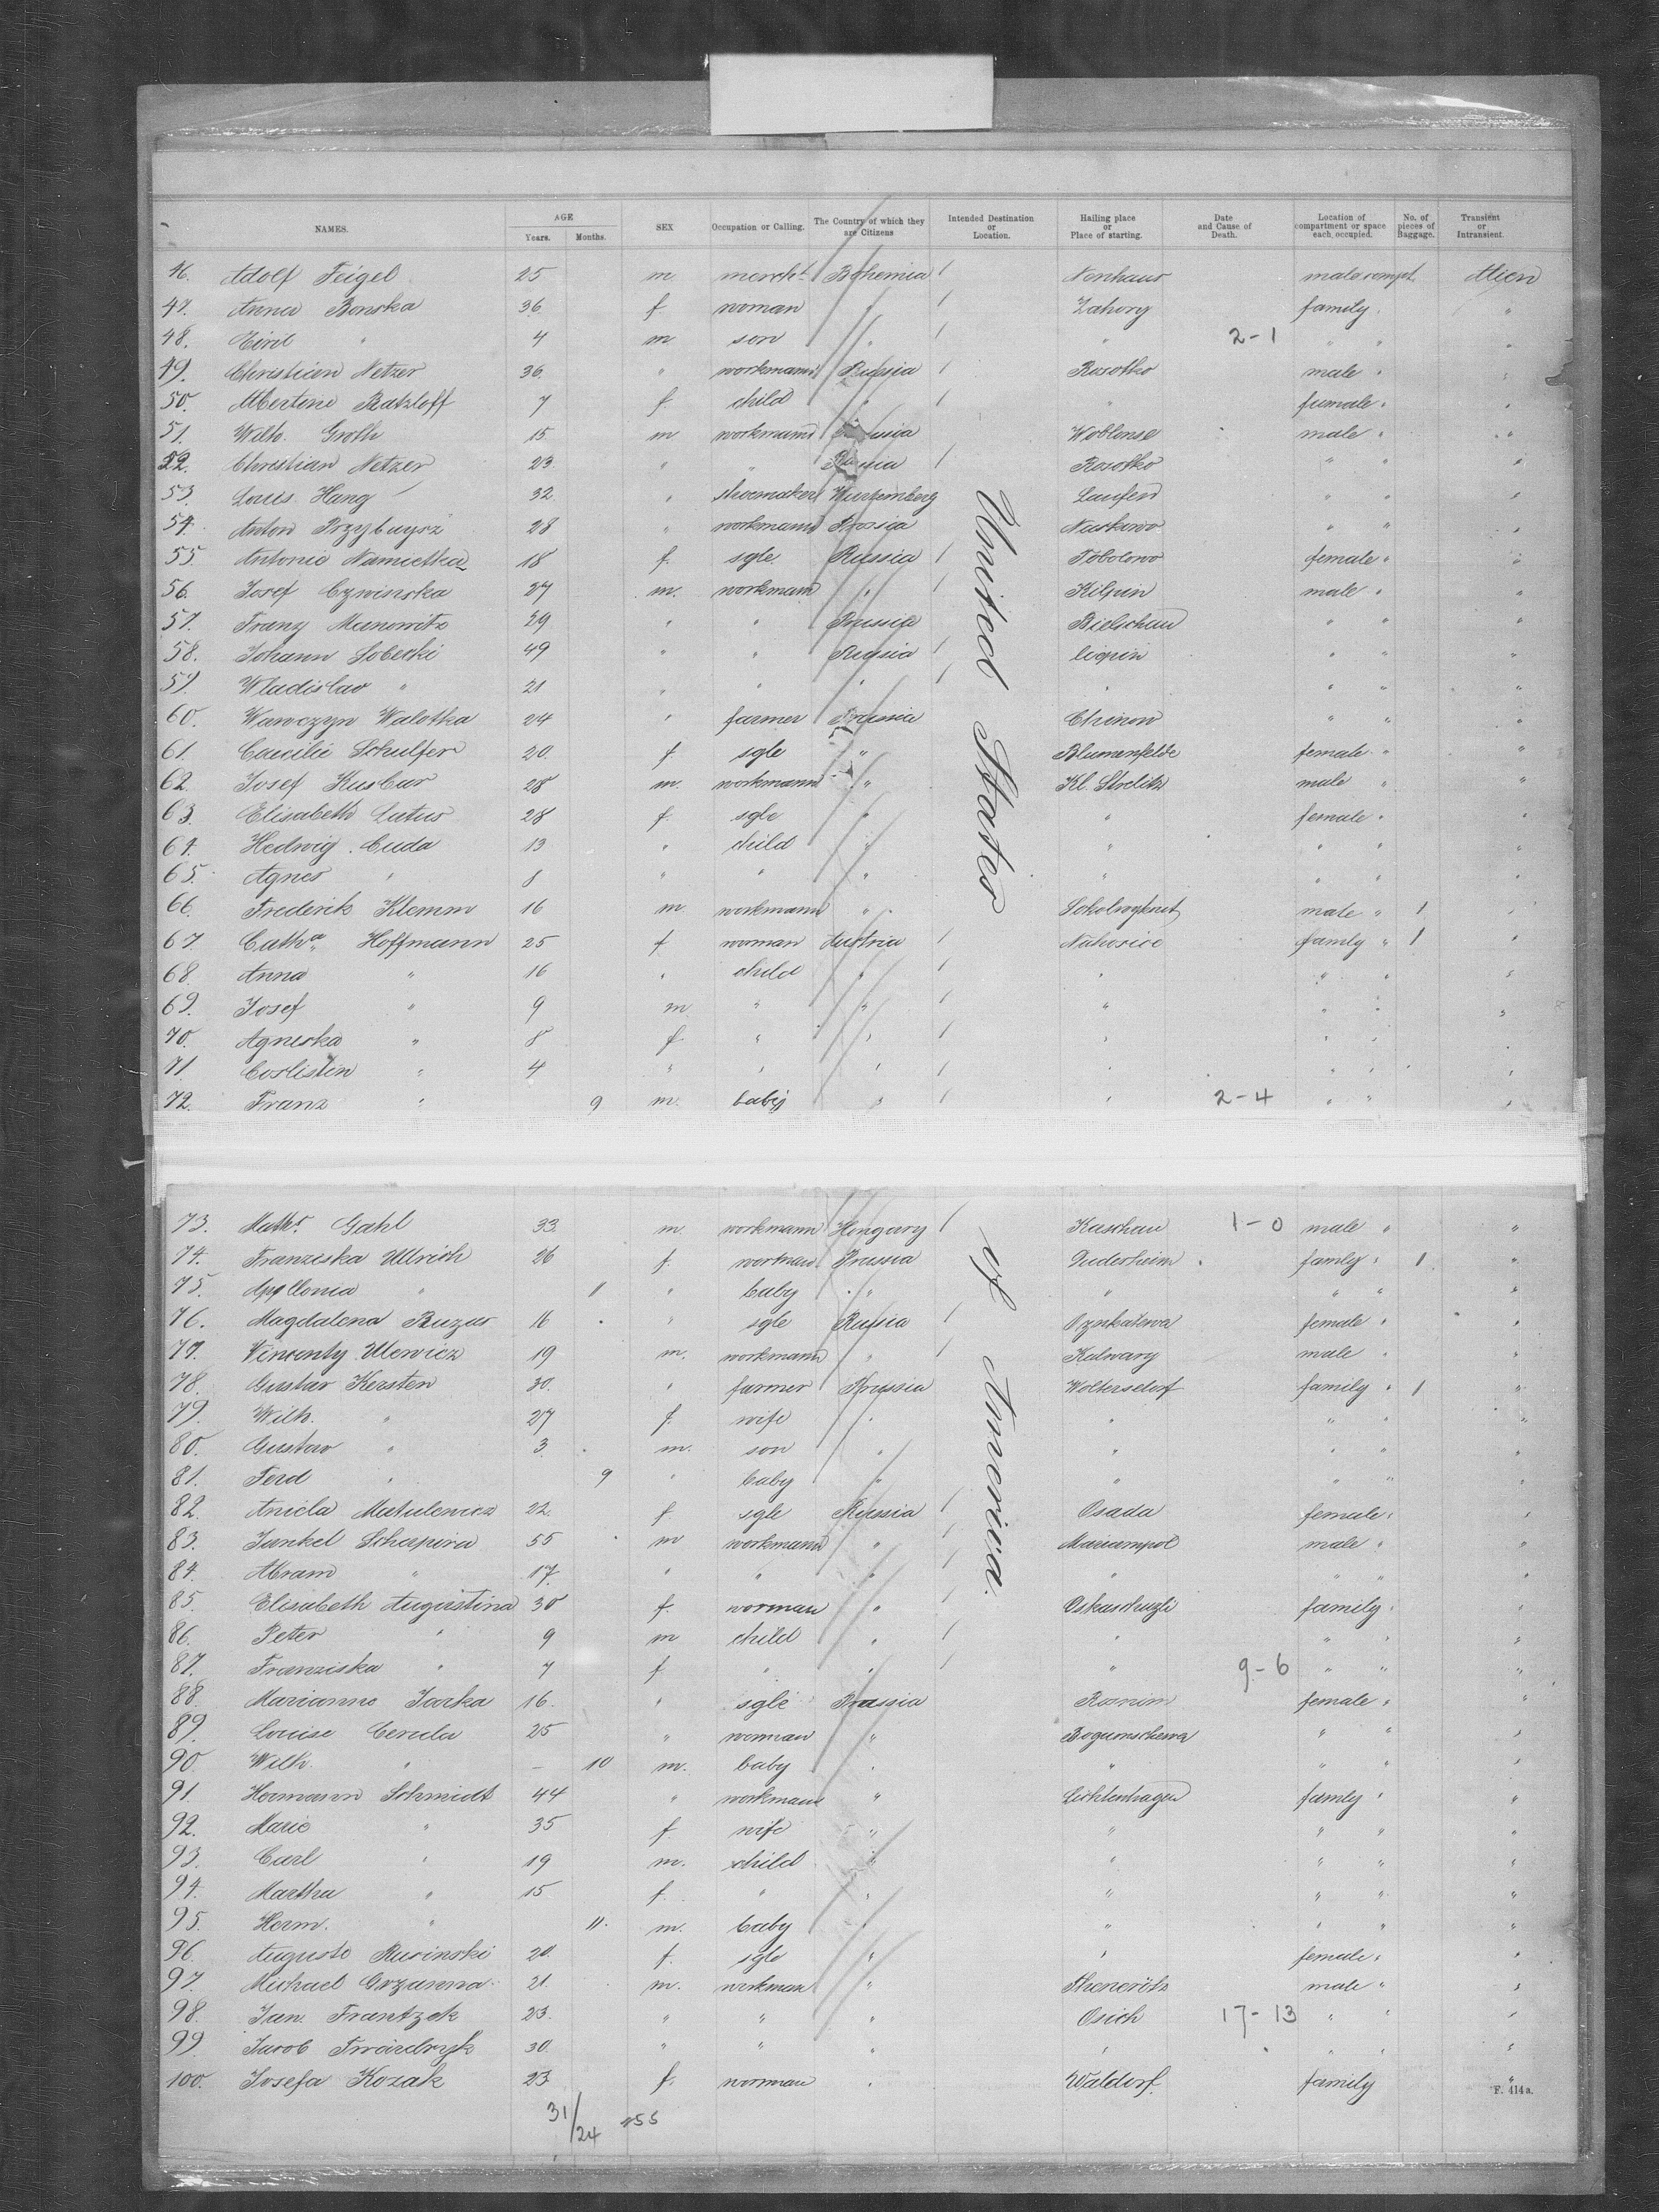 NAMES. AGE Years. Months. SEX Occupation or Calling. The Country of which they are Citizens Intended Destination or Location. Hailing place or Place of starting. Date and Cause of Death. Location of compartment or space each occupied. No. of pieces of Baggage. Transient or Intransient.
46. Adolf Feigel 25 m mercht Bohemia / Nenhaus male compt. Alien
47. Anna Bonska 36 f. woman " / Zahory family "
48. " 4 m son " / " 2-1 " " "
49. Christian Netzer 36 " workmann Russia / Rosotko male " "
50. Albertine Ratzloff 7 f. child " / " female " "
51. Wilh. Groth 15 m workmann Woblonse male " "
52. Christian Netzer 23 " " Russia / Rosotko " " "
53. Louis Hang 32 " shoemaker Wurtemberg Laufen " " "
54. Anton 28 " workmann Prussia Naskowo " " "
55. Antonie Namietka 18 f. sgle Russia / Tobolowo female " "
56. Josef Czwinska 27 m. workmann " / Kilpin male " "
57. Franz Manowitz 29 " " Prussia Bielschau " " "
58. Johann Sobecki 49 " " Russia / Cispin " " "
59. Wladislav " 21 " " " / " " " "
60. Wawczyn Walotka 24 " farmer Prussia Chinow " " "
61. Caecilie Schulfer 20 f sgle " Blumenfelde female " "
62. Josef Kusbar 28 m. workmann " Kl. Strelitz male " "
63. Elisabeth Latus 28 f. sgle " " female " "
64. Hedwig Cuda 13 " child " " " " "
65. Agnes " 8 " " " " " " "
66. Frederik Klemm 16 m workmann " male " 1 "
67. Catha Hoffmann 25 f woman Austria / Nahosice famly " 1 "
68. Anna " 16 " child " / " " " "
69. Josef " 9 m. " " / " " " "
70. Agneska " 8 f " " / " " " "
71 " 4 " " " / " " " "
72. Franz " 9 m. baby " / " 2-4 " " "
73. Maths Gahl 33. m. workmann Hungary / Kaschau 1-0 male " "
74. Franziska Ullrich 26 f. woman Prussia Duderheim famly " 1 "
75. Apollonia " 11 " baby " " " " "
76. Magdalena Ruzas 16 " sgle Russia / female " "
77. Vincenty Ulewicz 19 m. workmann " / Kalwary male " "
78. Gustav Kersten 30. " farmer Prussia Woltersdorf family " 1 "
79. Wilh. " 27 f. wife " " " " "
80. Gustav " 3 m. son " " " " "
81. Ferd " 9 " baby " " " " "
82. Aniela Matulewicz 22. f sgle Russia / Osada female " "
83. Jankel Schapira 55 m workmann " / Mariampol male " "
84. Abram " 17 " " " / " " " "
85. Elisabeth Augustina 30 f. woman " / Oskaschuzli family " "
86. Peter " 9 m child " / " " " "
87. Franziska " 7 f " " / " 9-6 " " "
88. Marianne Jarka 16. " sgle Prussia Roznim female " "
89. Louise Cerula 25 " woman " Bogumschewa " " "
90. Wilh. " – 10 m. baby " " " " "
91. Hermann Schmidt 44 " workmann " Lichtenhagen famly " "
92. Marie " 35 f. wife " " " " "
93. Carl " 19 m. child " " " " "
94. Martha " 15 f. " " " " " "
95. Herm. " 11. m. baby " " " " "
96. Auguste Rusinski 20 f. sgle " " female " "
97. Michael Grzanna 21. m. workman " male " "
98. Jan Frantzek 23. " " " Osich 17-13 " " "
99. Jacob 30. " " " " " " "
100. Josefa Kozak 23 f. woman " Waldorf. family "
United States of America.
31/24 55
F. 414a.